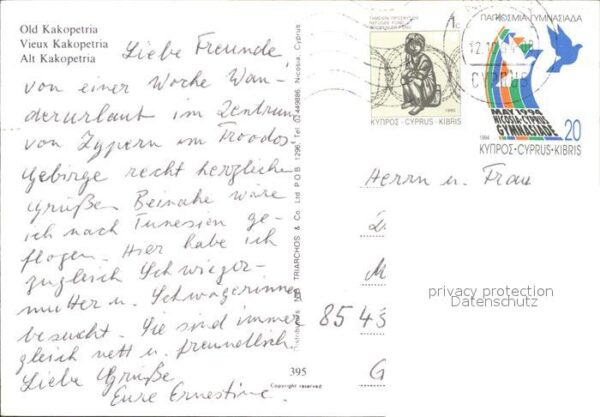 Old Kakopetria
Vieux Kakopetria
Alt Kakopetria
Liebe Freunde
von einer Woche Wan-
derurlaub im Zentrum
von Zypern im Troodos-
Gebirge recht herzliche
Grüße. Beinahe wäre
ich nach Tunesien ge-
flogen. Hier habe ich
zugleich Schwieger-
mutter u. Schwägerinnen
besucht. Sie sind immer
gleich nett u. freundlich.
Liebe Grüße
Eure Ernestine.
TRIARCHOS & Co. Ltd P.O.B 1296, Tel. 02449886, Nicosia, Cyprus
395
Copyright reserved
1c
1993
ΚΥΠΡΟΣ·CYPRUS·KIBRIS
ΠΑΓΚΟΣΜΙΑ ΓΥΜΝΑΣΙΑΔΑ
CYPRUS
MAY 1994
NICOSIA-CYPRUS
GYMNASIADE
1994
20
ΚΥΠΡΟΣ·CYPRUS·KIBRIS
Herrn u. Frau
M
8543
G
privacy protection
Datenschutz